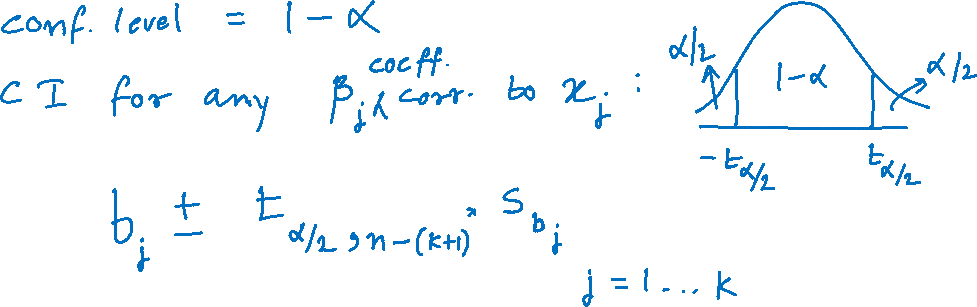 conf. level = 1 - α
CI for any βj coeff. corr. to xj :
α/2 1-α α/2
-tα/2 tα/2
bj ± tα/2, n-(k+1) * Sbj
j = 1 ... k